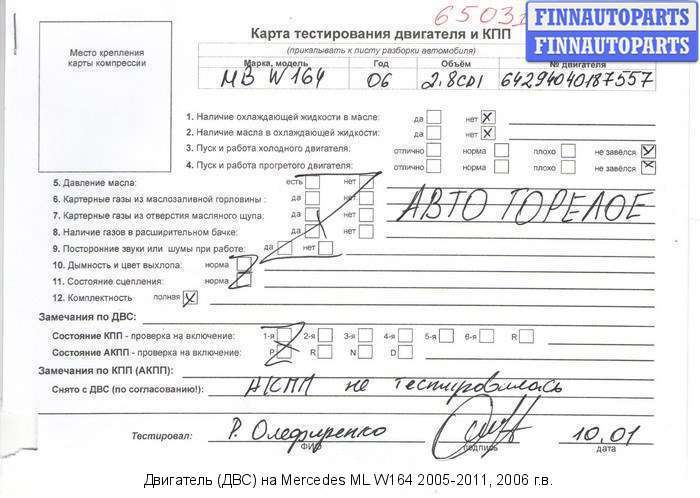 65031
FINNAUTOPARTS
FINNAUTOPARTS
Место крепления
карты компрессии
Карта тестирования двигателя и КПП
(прикалывать к листу разборки автомобиля)
Марка, модель Год Объём № двигателя
MB W164 06 2.8CDI 64294040187557
1. Наличие охлаждающей жидкости в масле: да нет X
2. Наличие масла в охлаждающей жидкости: да нет X
3. Пуск и работа холодного двигателя: отлично норма плохо не завёлся X
4. Пуск и работа прогретого двигателя: отлично норма плохо не завёлся X
5. Давление масла: есть нет
6. Картерные газы из маслозаливной горловины: да нет
7. Картерные газы из отверстия масляного щупа: да нет
АВТО ГОРЕЛОЕ
8. Наличие газов в расширительном бачке: да нет
9. Посторонние звуки или шумы при работе: да нет
10. Дымность и цвет выхлопа: норма
11. Состояние сцепления: норма
12. Комплектность полная X
Замечания по ДВС:
Состояние КПП - проверка на включение: 1-я 2-я 3-я 4-я 5-я 6-я R
Состояние АКПП - проверка на включение: P R N D
Замечания по КПП (АКПП):
Снято с ДВС (по согласованию!): АКПП не тестировалась
Тестировал: Р. Олефиренко 10.01
ФИО подпись дата
Двигатель (ДВС) на Mercedes ML W164 2005-2011, 2006 г.в.